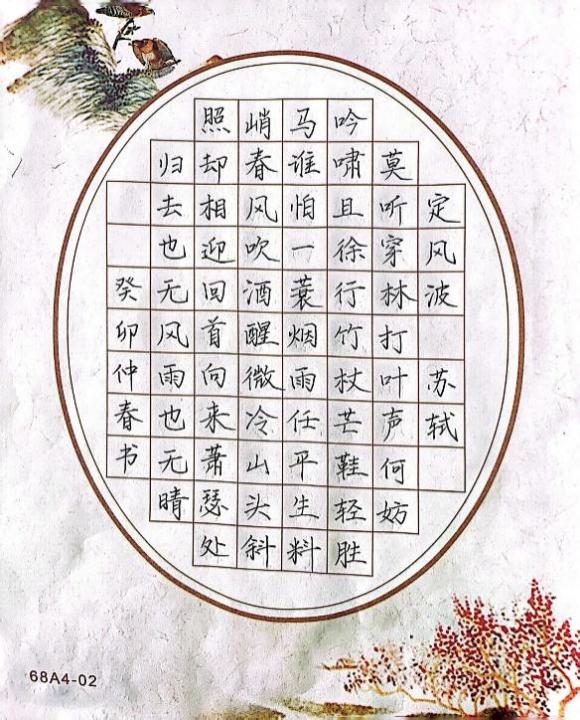 定风波 苏轼
莫听穿林打叶声何妨
吟啸且徐行竹杖芒鞋轻胜
马谁怕一蓑烟雨任平生料
峭春风吹酒醒微冷山头斜
照却相迎回首向来萧瑟处
归去也无风雨也无晴
癸卯仲春书
68A4-02